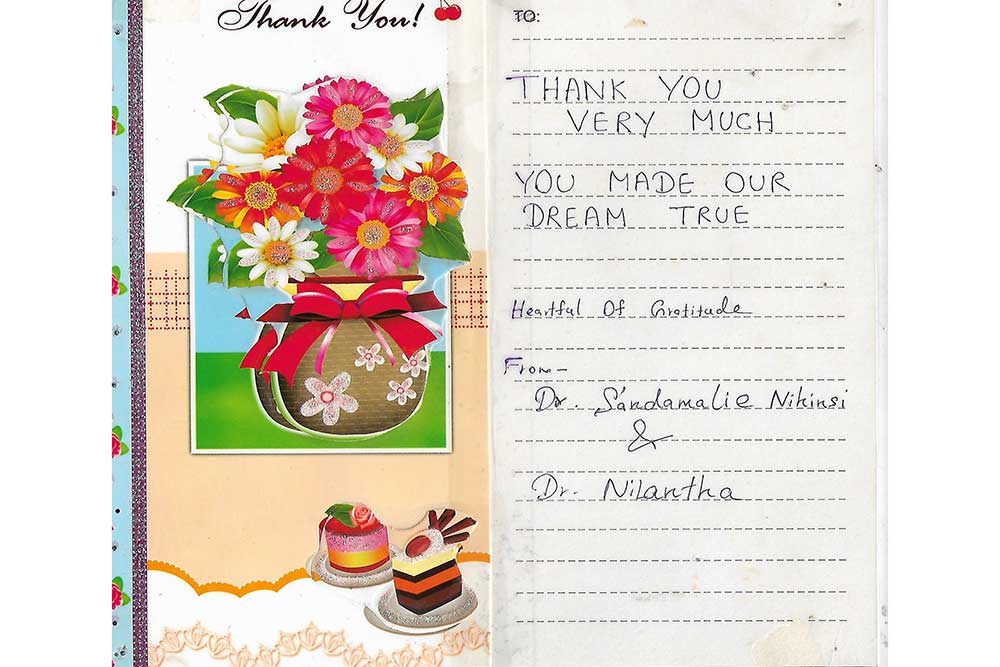 Thank You!
TO:
THANK YOU
VERY MUCH
YOU MADE OUR
DREAM TRUE
Heartful Of Gratitude
From-
Dr. Sandamalie Nikinsi
&
Dr. Nilantha